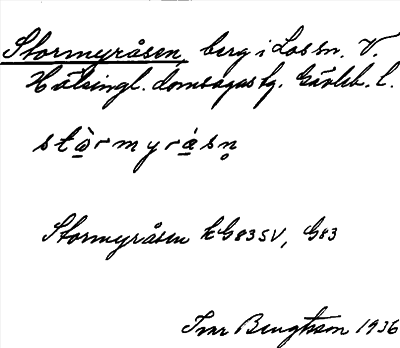 Stormyråsen, berg i Los sn. V.
Hälsingl. domsagas tg. Gävleb. l.
stɔ̀rmyrásn̥
Stormyråsen kG83SV, G83
Ivar Bengtsson 1936